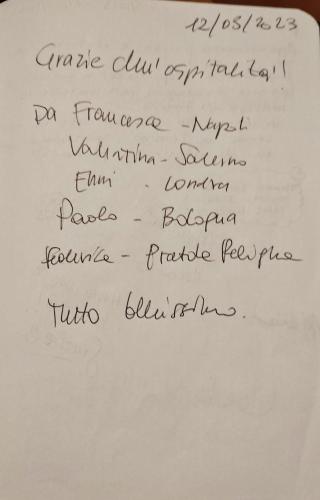 12/08/2023
Grazie dell'ospitalità!!
Da Francesca - Napoli
Valentina - Salerno
Emi - Londra
Paolo - Bologna
Federica - Pratola Peligna
Tutto bellissimo.